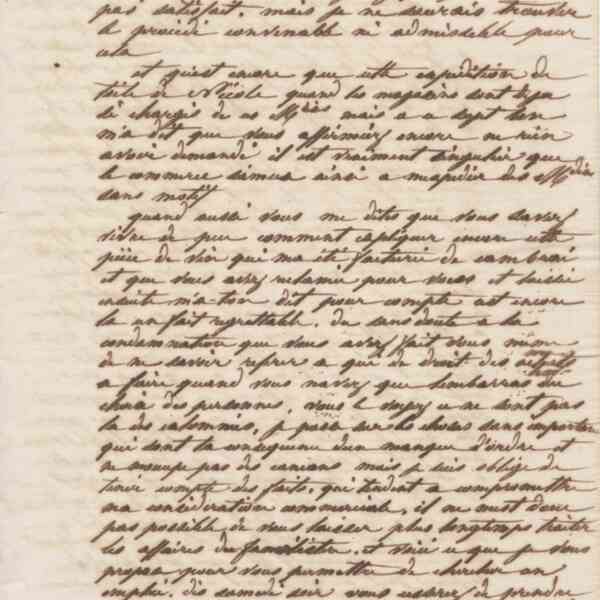 pas satisfait, mais je ne saurais trouver
le procédé convenable ni admissible pour
cela
et qu'est encore que cette expédition de
toile à Nicole quand les magasins sont déja
si chargés de ces Mdises mais a a
m'a dit que vous affirmiez encore ne rien
avoir demandé il est vraiment singulier que
le commerce s'amuse ainsi a m'expédier des Mdises
sans motif
quand aussi vous me dites que vous savez
vivre de peu comment expliquer encore cette
pièce de vin qui m'a été facturée de Cambrai
et que vous avez réclamée pour vous et laissée
ensuite m'a-t-on dit pour compte est encore
la un fait regrettable. du sans doute a la
condamnation que vous avez fait vous même
de ne savoir référer a qui de droit des
a faire quand vous n'avez que l'embarras du
choix des personnes. vous le voyez ce ne sont pas
la des calomnies, je passe sur les choses sans importance
qui sont la conséquence d'un manque d'ordre et
ne m'occupe pas des cancans mais je suis obligé de
tenir compte des faits, qui tendent a compromettre
ma considération commerciale, il ne m'est donc
pas possible de vous laisser plus longtemps traiter
les affaires du familistère, et voici ce que je vous
propose pour vous permettre de chercher un
emploi. dès samedi soir vous cesserez de prendre